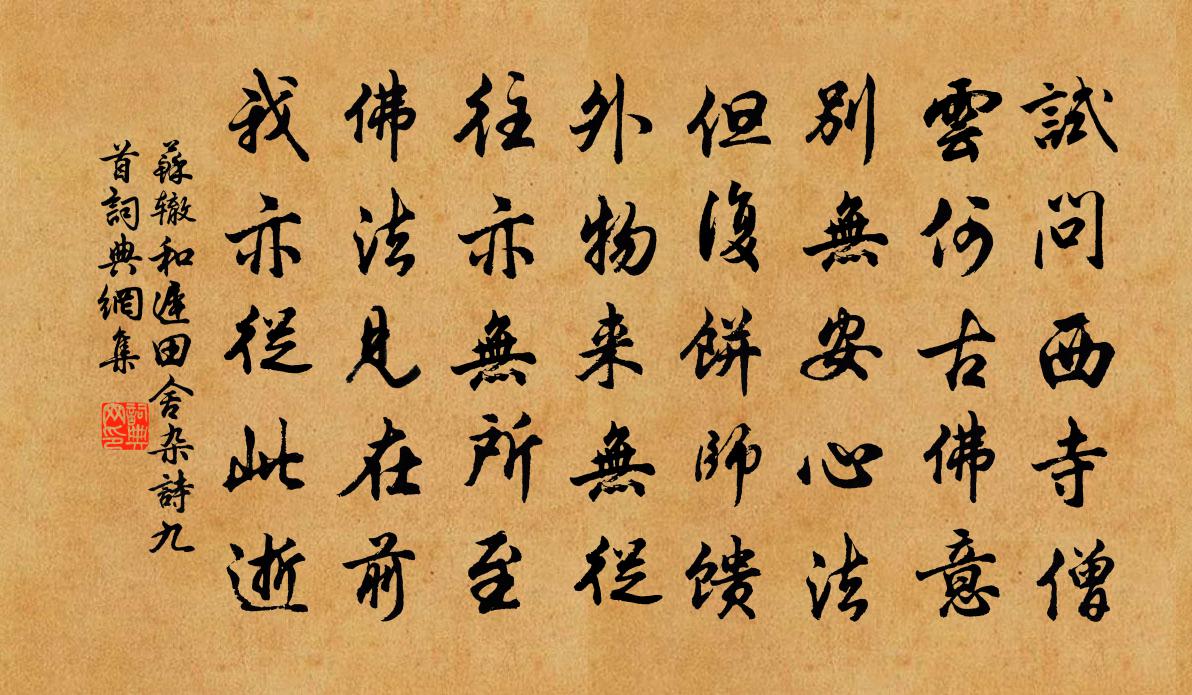 試問西寺僧
雲何古佛意
別無安心法
但復餅師饋
外物来無從
往亦無所至
佛法見在前
我亦從此逝
蘇辙和遲田舍杂詩九
首詞典網集
詞典网印